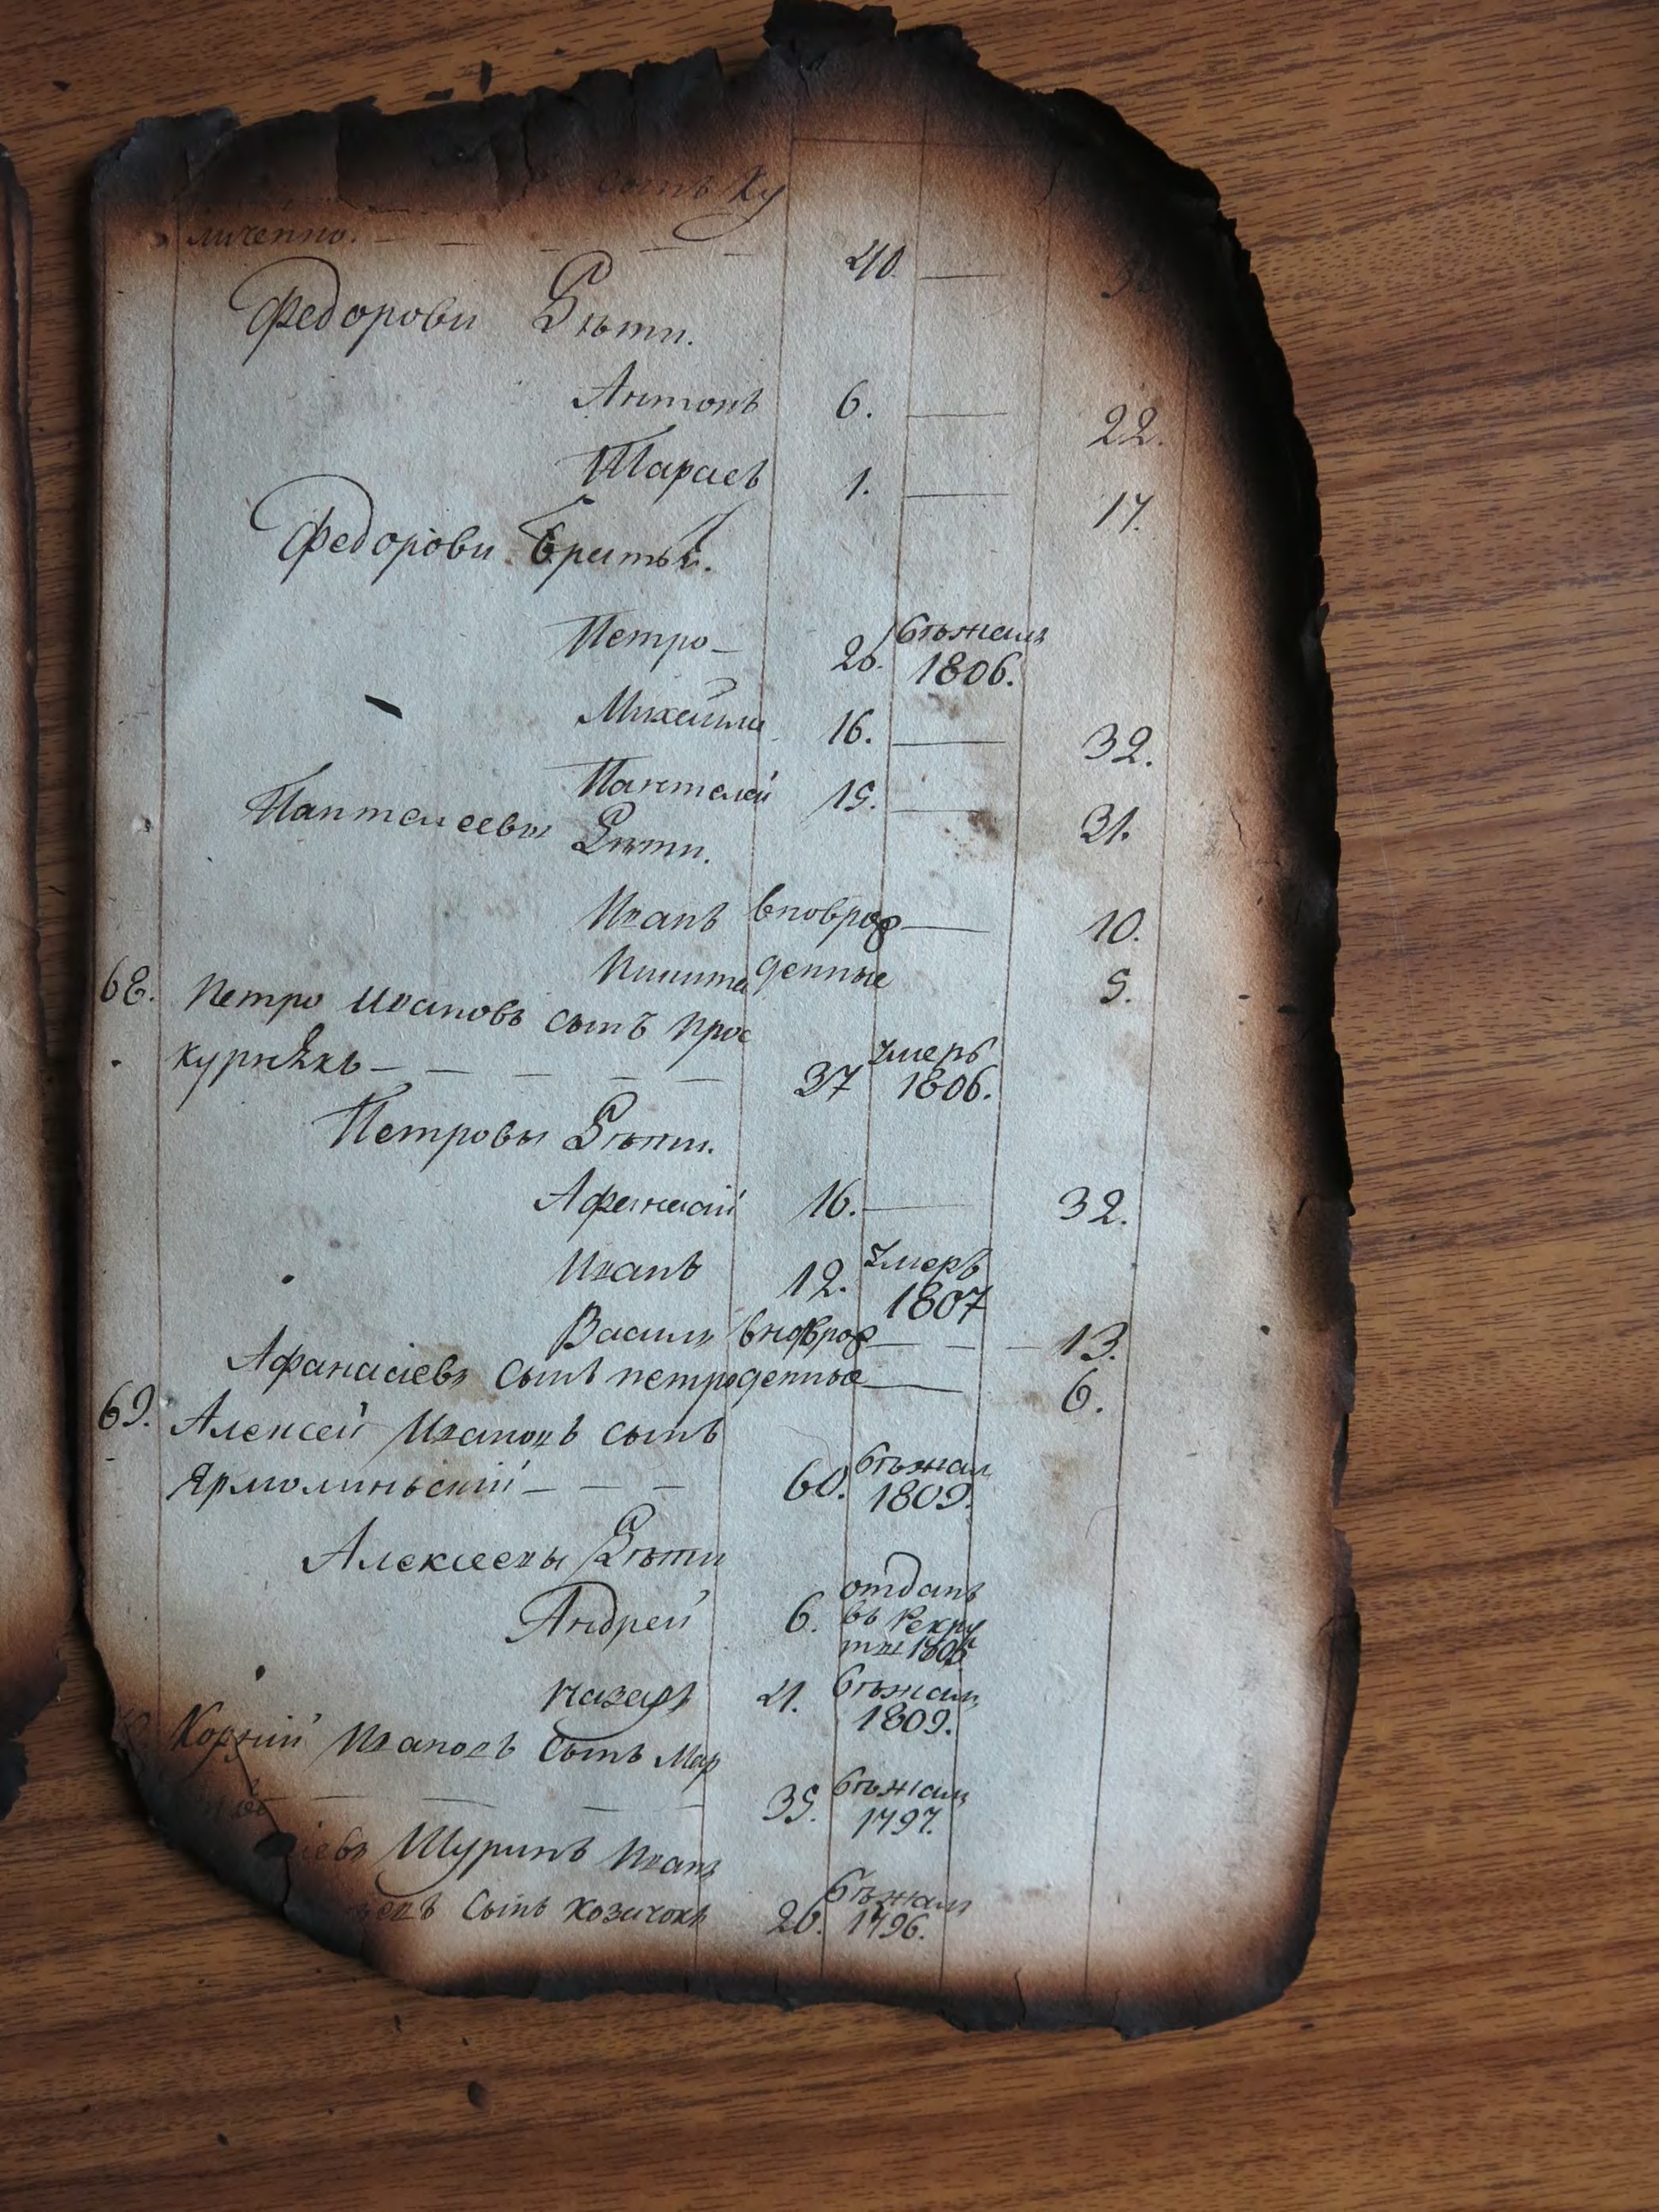 сынъ Ку
личенко. — — — — — 40. —
Федорови Дѣти.
Антонъ 6. — 22.
Тарасъ 1. — 17.
Федорови Братья.
Петро — 26. бѣжалъ
1806.
Михайла 16. — 32.
Пантелей 15. — 31.
Пантелеевы Дѣти.
Иванъ вноврож — 10.
Никита денные 5.
68. Петро Ивановъ сынъ Прос
курнякъ — — — — — 37 Умеръ
1806.
Петровы Дѣти.
Афанасій 16. — 32.
Иванъ 12. Умеръ
1807
Василь вноврож — — — 13.
Афанасіевъ сынъ петро денные — 6.
69. Алексей Ивановъ сынъ
Ярмолиньскій — — — 60. бѣжал
1809.
Алексеевы Дѣти
Андрей 6. отданъ
въ Рекру
ты 1805
Назаръ 21. бѣжалъ
1809.
Корній Ивановъ Сынъ Мар
— — — — 35. бѣжалъ
1797.
іевъ Шуринъ Иванъ
сынъ Козачокъ 26. бѣжалъ
1796.